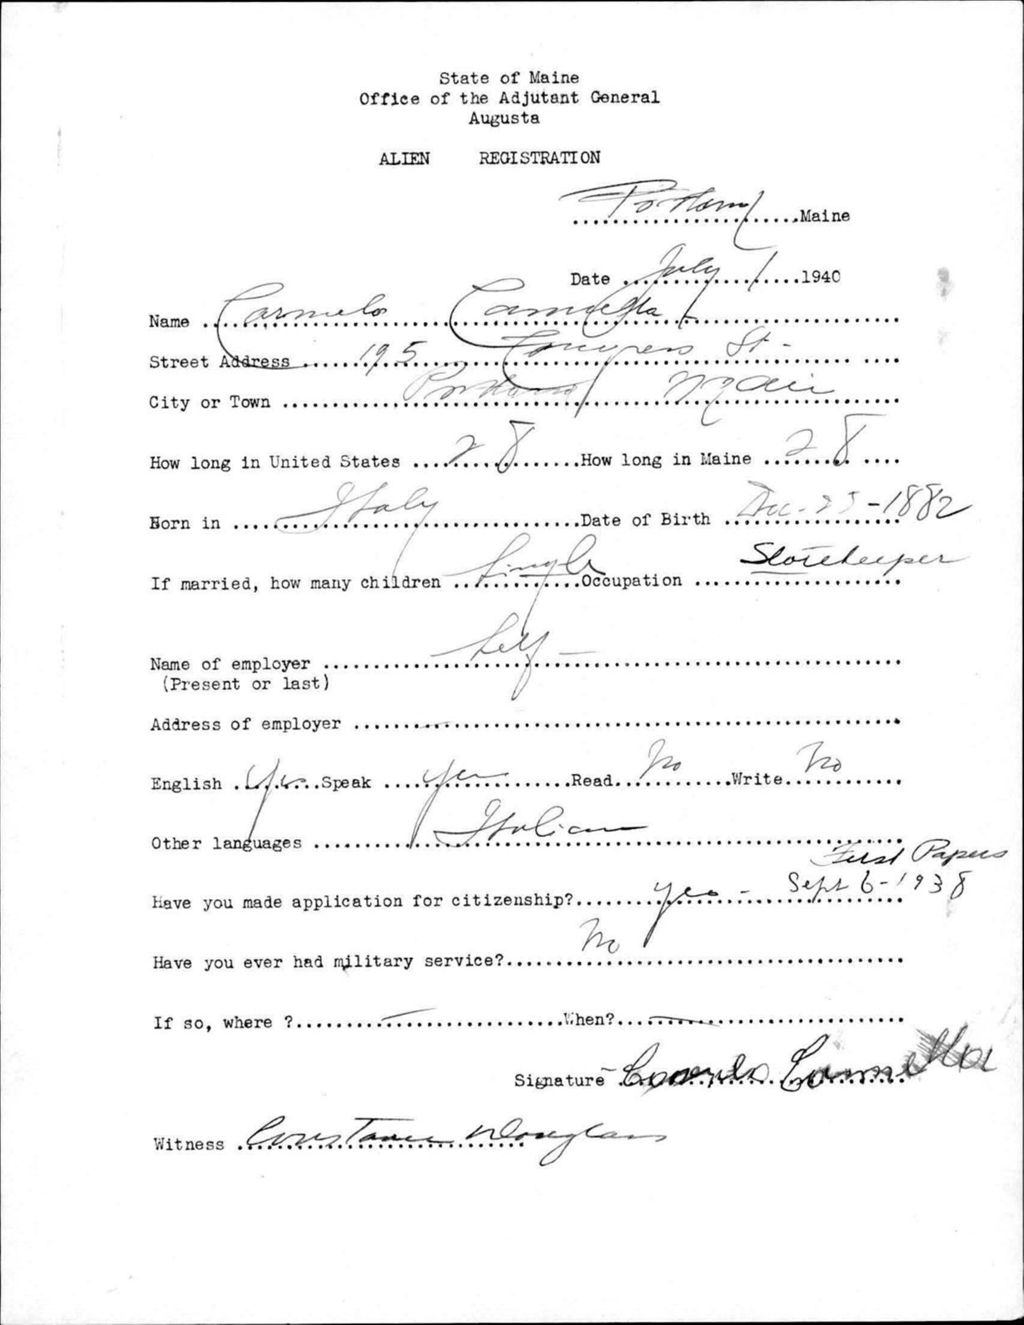 State of Maine
Office of the Adjutant General
Augusta
ALIEN REGISTRATION
Portland Maine
Date July 1 1940
Name Carmelo
Street Address 195 Congress St -
City or Town Portland
How long in United States 28 How long in Maine 28
Born in Italy Date of Birth Dec. 25 - 1882
If married, how many children Single Occupation Storekeeper
Name of employer Self -
(Present or last)
Address of employer
English Yes Speak Yes Read No Write No
Other languages Italian
First Papers
Have you made application for citizenship? Yes - Sept 6 - 1938
Have you ever had military service? No
If so, where ? — When? —
Signature
Witness Constance Douglass